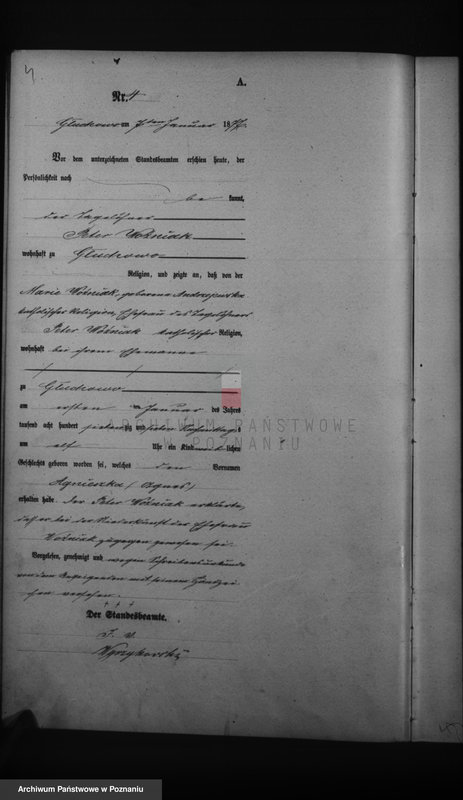 4
A.
Nr. 4
Gluchowo am 7ten Januar 1876
Vor dem unterzeichneten Standesbeamten erschien heute, der
Persönlichkeit nach
be kannt,
der Tagelöhner
Peter Woźniak
wohnhaft zu Gluchowo
Religion, und zeigte an, daß von der
Marie Woźniak, geborene Andrzejewska
katholischer Religion, Ehefrau des Tagelöhners
Peter Woźniak katholischer Religion,
wohnhaft bei ihrem Ehemanne
zu Gluchowo
am ersten Januar des Jahrs
tausend acht hundert siebenzig und sechs Nachmittags
um elf Uhr ein Kind weiblichen
Geschlechts geboren worden sei, welches den Vornamen
Agnieszka (Agnes)
erhalten habe der Peter Woźniak erklärte,
daß er bei der Niederkunft der Ehefrau
Woźniak zugegen gewesen sei.
Vorgelesen, genehmigt und wegen Schreibensunkunde
von dem Anzeigenden mit seinem Handzei
chen versehen.
+ + +
Der Standesbeamte.
I. V.
ARCHIWUM PAŃSTWOWE
W POZNANIU
Archiwum Państwowe w Poznaniu